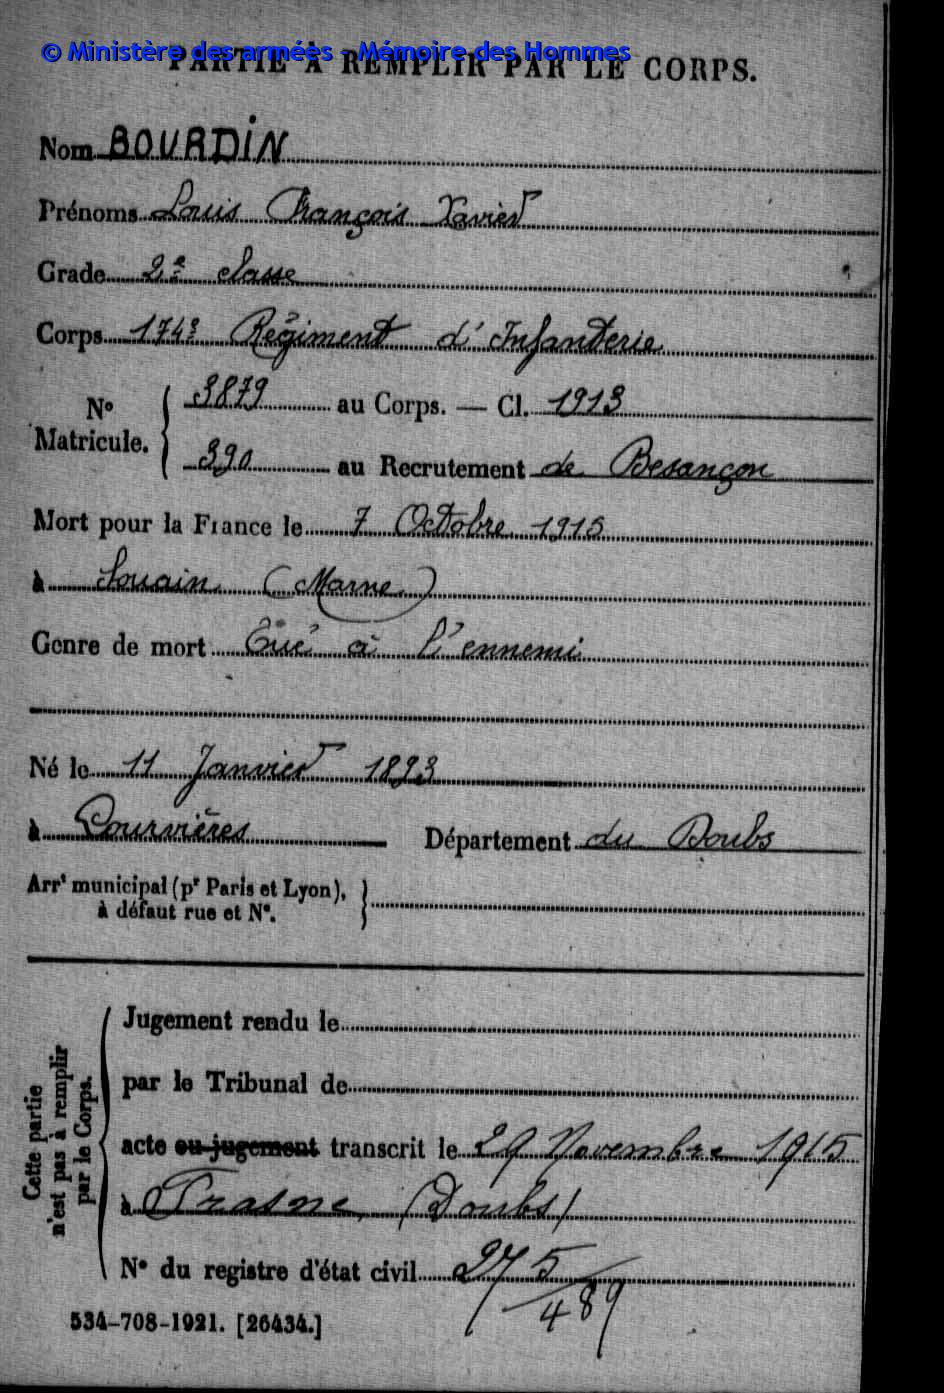 © Ministère des armées - Mémoire des Hommes
PARTIE À REMPLIR PAR LE CORPS.
Nom BOURDIN
Prénoms Louis François Xavier
Grade 2e classe
Corps 174e Régiment d'Infanterie
No Matricule. { 3879 au Corps. — Cl. 1913
390 au Recrutement de Besançon
Mort pour la France le 7 Octobre 1915
à Souain (Marne)
Genre de mort Tué à l'ennemi
Né le 11 Janvier 1893
à Courvières Département du Doubs
Arrt municipal (pr Paris et Lyon),
à défaut rue et No.
Cette partie
n'est pas à remplir
par le Corps.
Jugement rendu le
par le Tribunal de
acte ou jugement transcrit le 29 Novembre 1915
à Frasne (Doubs)
No du registre d'état civil 275/489
534-708-1921. [26434.]